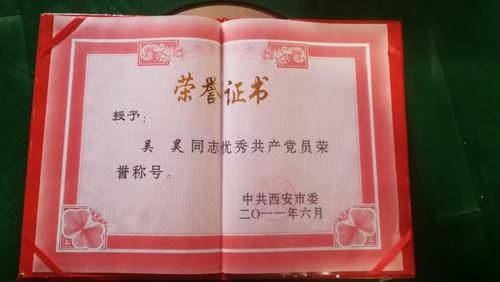 荣誉证书
授予：
吴 昊 同志优秀共产党员荣
誉称号。
中共西安市委
二〇一一年六月